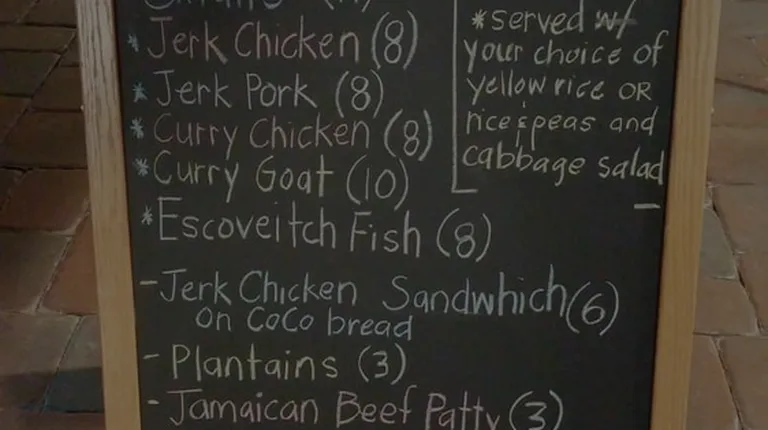 * Jerk Chicken (8)
* Jerk Pork (8)
* Curry Chicken (8)
* Curry Goat (10)
* Escoveitch Fish (8)
- Jerk Chicken Sandwhich (6)
on CoCo bread
- Plantains (3)
- Jamaican Beef Patty (3)
*served w/
your choice of
yellow rice OR
rice & peas and
cabbage salad